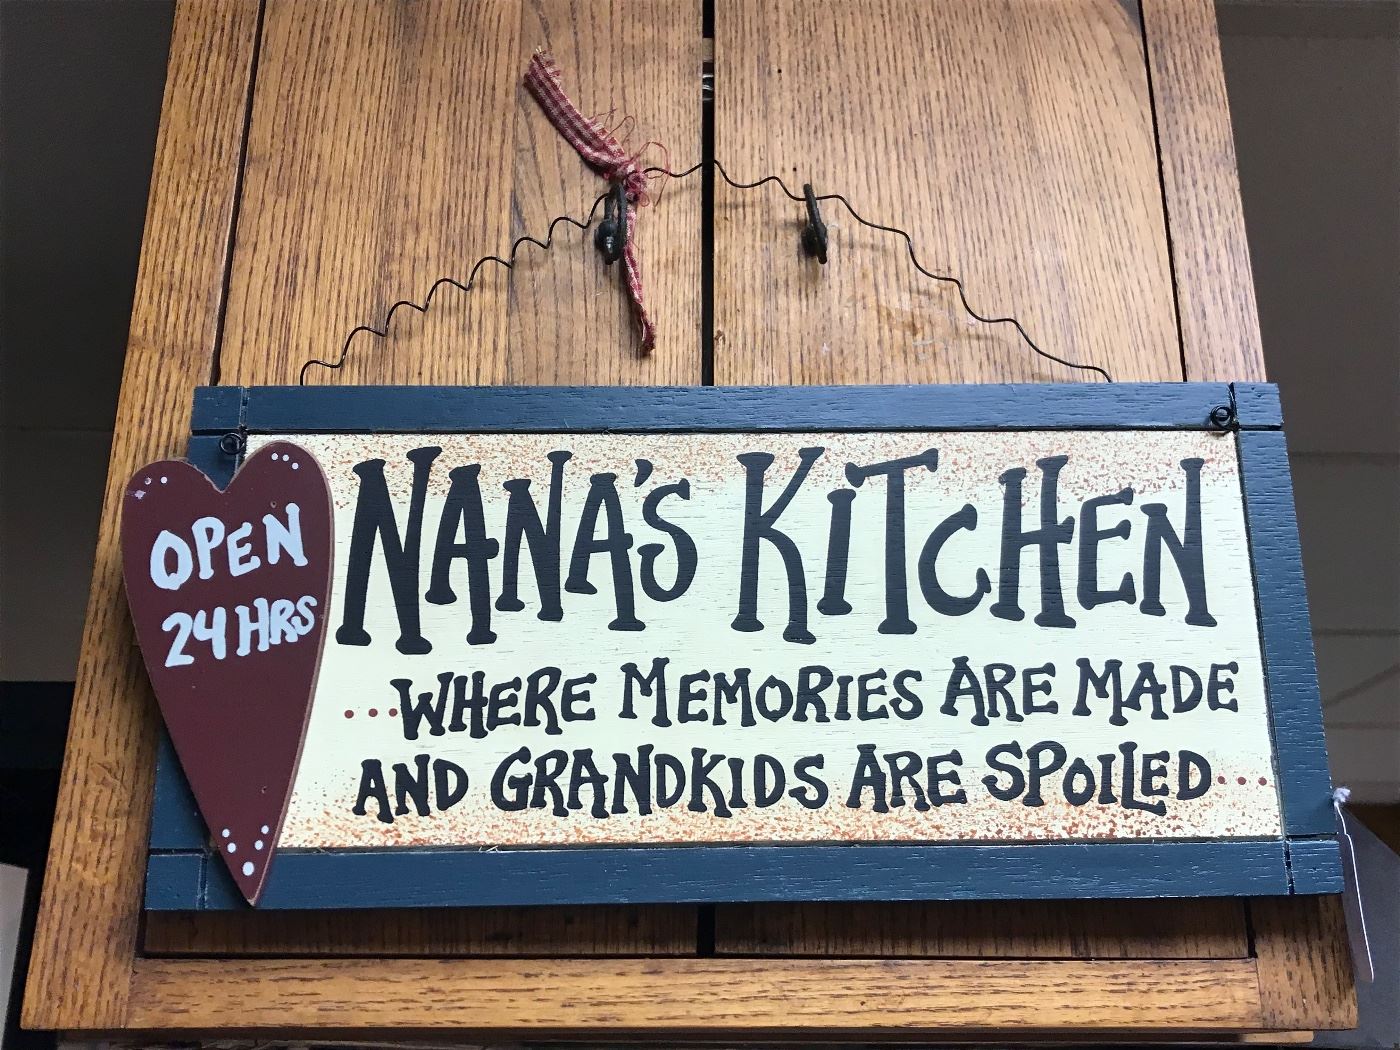 OPEN
24 HRS
NANA'S KiTCHEN
...WHERE MEMORIES ARE MADE
AND GRANDKIDS ARE SPOILED...